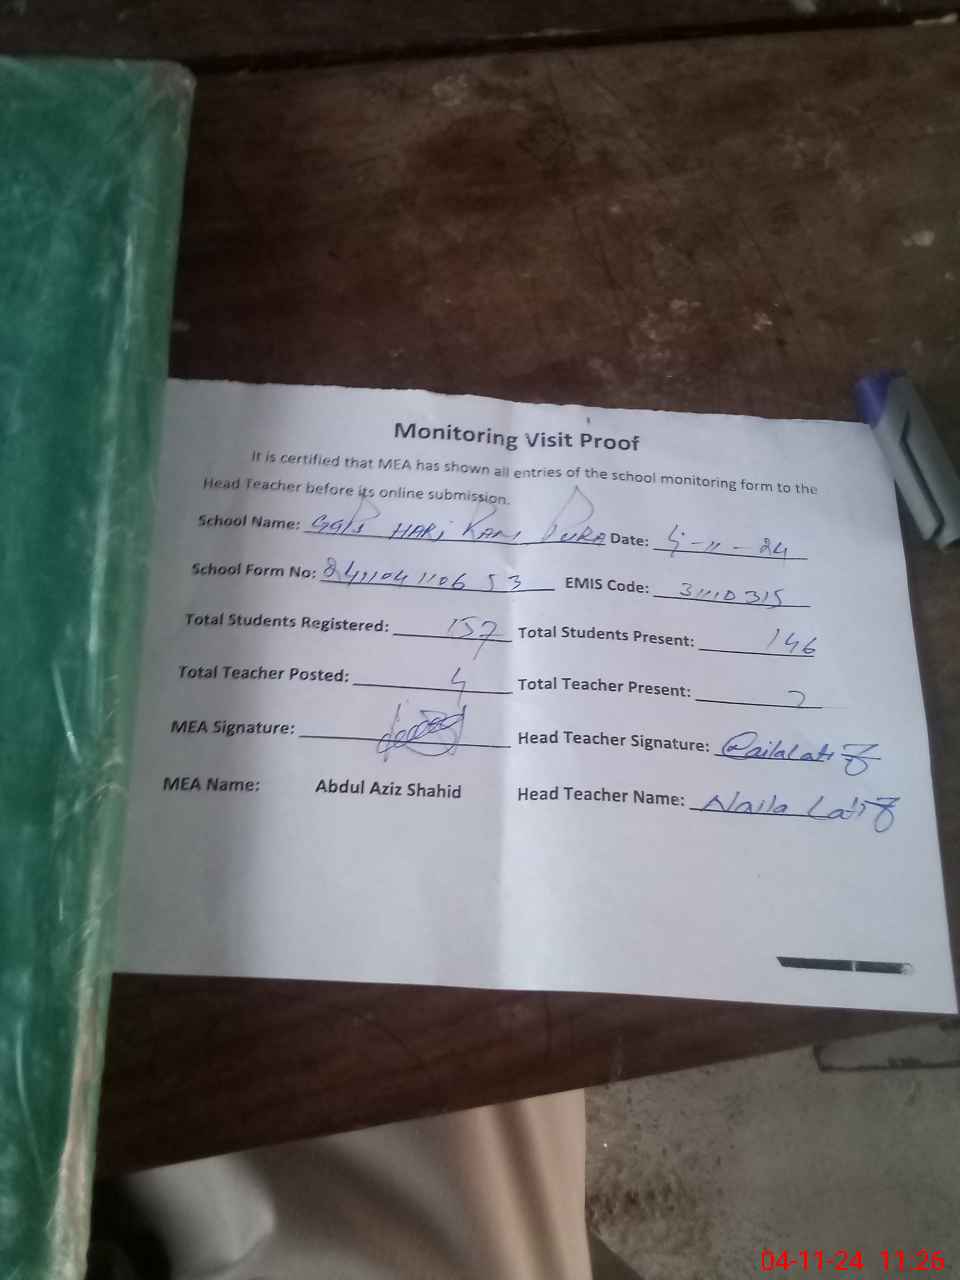 Monitoring Visit Proof
It is certified that MEA has shown all entries of the school monitoring form to the
Head Teacher before its online submission.
School Name: HARi RAM PURA Date: 4-11-24
School Form No: 2411041106 53 EMIS Code: 31110315
Total Students Registered: 157 Total Students Present: 146
Total Teacher Posted: 4 Total Teacher Present: 2
MEA Signature: Head Teacher Signature:
MEA Name: Abdul Aziz Shahid Head Teacher Name: Naila Latif
04-11-24 11:26